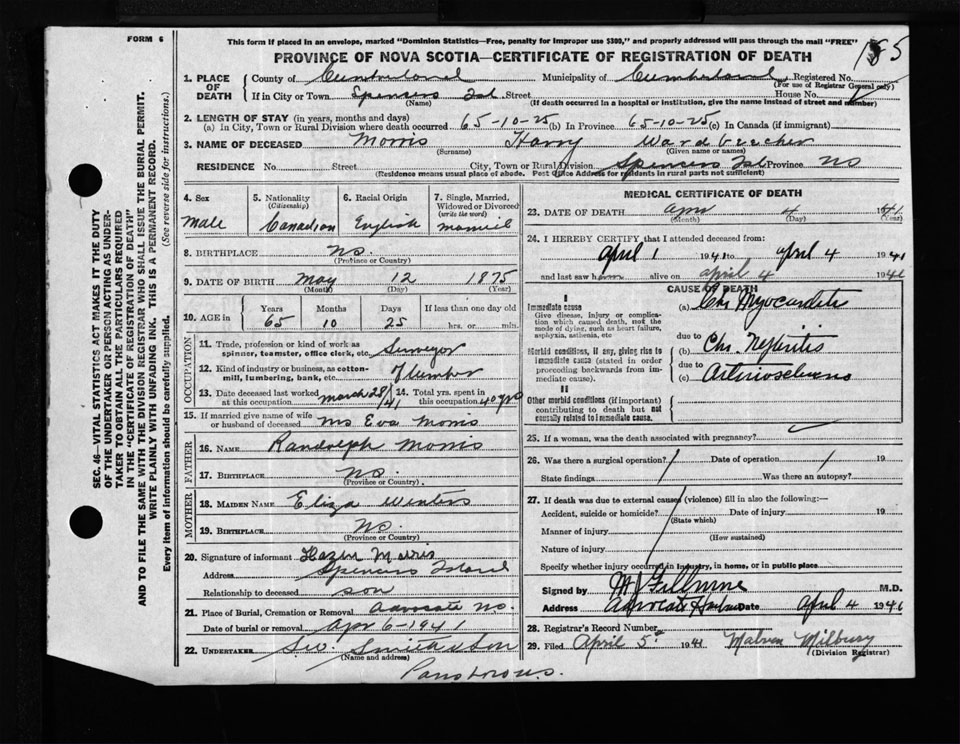 FORM 6
This form if placed in an envelope, marked "Dominion Statistics—Free, penalty for improper use $300," and properly addressed will pass through the mail "FREE"
PROVINCE OF NOVA SCOTIA—CERTIFICATE OF REGISTRATION OF DEATH
185
1. PLACE OF DEATH County of Cumberland Municipality of Cumberland Registered No.
(For use of Registrar General only)
If in City or Town Spencers Isl Street House No.
(Name) (If death occurred in a hospital or institution, give the name instead of street and number)
2. LENGTH OF STAY (in years, months and days)
(a) In City, Town or Rural Division where death occurred 65-10-25 (b) In Province 65-10-25 (c) In Canada (if immigrant)
3. NAME OF DECEASED Morris Harry Ward beecher
(Surname) (Given name or names)
RESIDENCE No. Street City, Town or Rural Division Spencers Isl Province NS
(Residence means usual place of abode. Post Office Address for residents in rural parts not sufficient)
4. Sex 5. Nationality (Citizenship) 6. Racial Origin 7. Single, Married, Widowed or Divorced (write the word)
Male Canadian English married
8. BIRTHPLACE NS.
(Province or Country)
9. DATE OF BIRTH May 12 1875
(Month) (Day) (Year)
10. AGE in Years Months Days If less than one day old
65 10 25 hrs. or min.
OCCUPATION
11. Trade, profession or kind of work as spinner, teamster, office clerk, etc. Surveyor
12. Kind of industry or business, as cotton-mill, lumbering, bank, etc. lumber
13. Date deceased last worked at this occupation March 28/41 14. Total yrs. spent in this occupation 40 yrs
15. If married give name of wife or husband of deceased Mrs Eva Morris
FATHER
16. NAME Randolph Morris
17. BIRTHPLACE NS.
(Province or Country)
MOTHER
18. MAIDEN NAME Eliza Winters
19. BIRTHPLACE NS.
(Province or Country)
20. Signature of informant Morris
Address Spencers Island
Relationship to deceased son
21. Place of Burial, Cremation or Removal Advocate NS.
Date of burial or removal Apr 6-1941
22. UNDERTAKER
(Name and address)
Parrsboro NS.
MEDICAL CERTIFICATE OF DEATH
23. DATE OF DEATH Apr 4 1941
(Month) (Day) (Year)
24. I HEREBY CERTIFY that I attended deceased from:
April 1 1941 to April 4 1941
and last saw him alive on April 4 1941
CAUSE OF DEATH
I
Immediate cause
Give disease, injury or complication which caused death, not the mode of dying, such as heart failure, asphyxia, asthenia, etc.
(a) Chr Myocarditis
due to
Morbid conditions, if any, giving rise to immediate cause (stated in order proceeding backwards from immediate cause).
(b) Chr. Nephritis
due to
(c) Arteriosclerosis
II
Other morbid conditions (if important) contributing to death but not causally related to immediate cause.
25. If a woman, was the death associated with pregnancy?
26. Was there a surgical operation? Date of operation 19
State findings Was there an autopsy?
27. If death was due to external causes (violence) fill in also the following:—
Accident, suicide or homicide? Date of injury 19
(State which)
Manner of injury
(How sustained)
Nature of injury
Specify whether injury occurred in industry, in home, or in public place
Signed by M.D.
Address Advocate Harbour Date April 4 1941
28. Registrar's Record Number
29. Filed April 5 1941 Milbury
(Division Registrar)
SEC. 46—VITAL STATISTICS ACT MAKES IT THE DUTY
OF THE UNDERTAKER OR PERSON ACTING AS UNDER-
TAKER TO OBTAIN ALL THE PARTICULARS REQUIRED
IN THE "CERTIFICATE OF REGISTRATION OF DEATH"
AND TO FILE THE SAME WITH THE DIVISION REGISTRAR WHO SHALL ISSUE THE BURIAL PERMIT.
WRITE PLAINLY WITH UNFADING INK. THIS IS A PERMANENT RECORD.
Every item of information should be carefully supplied. (See reverse side for instructions.)